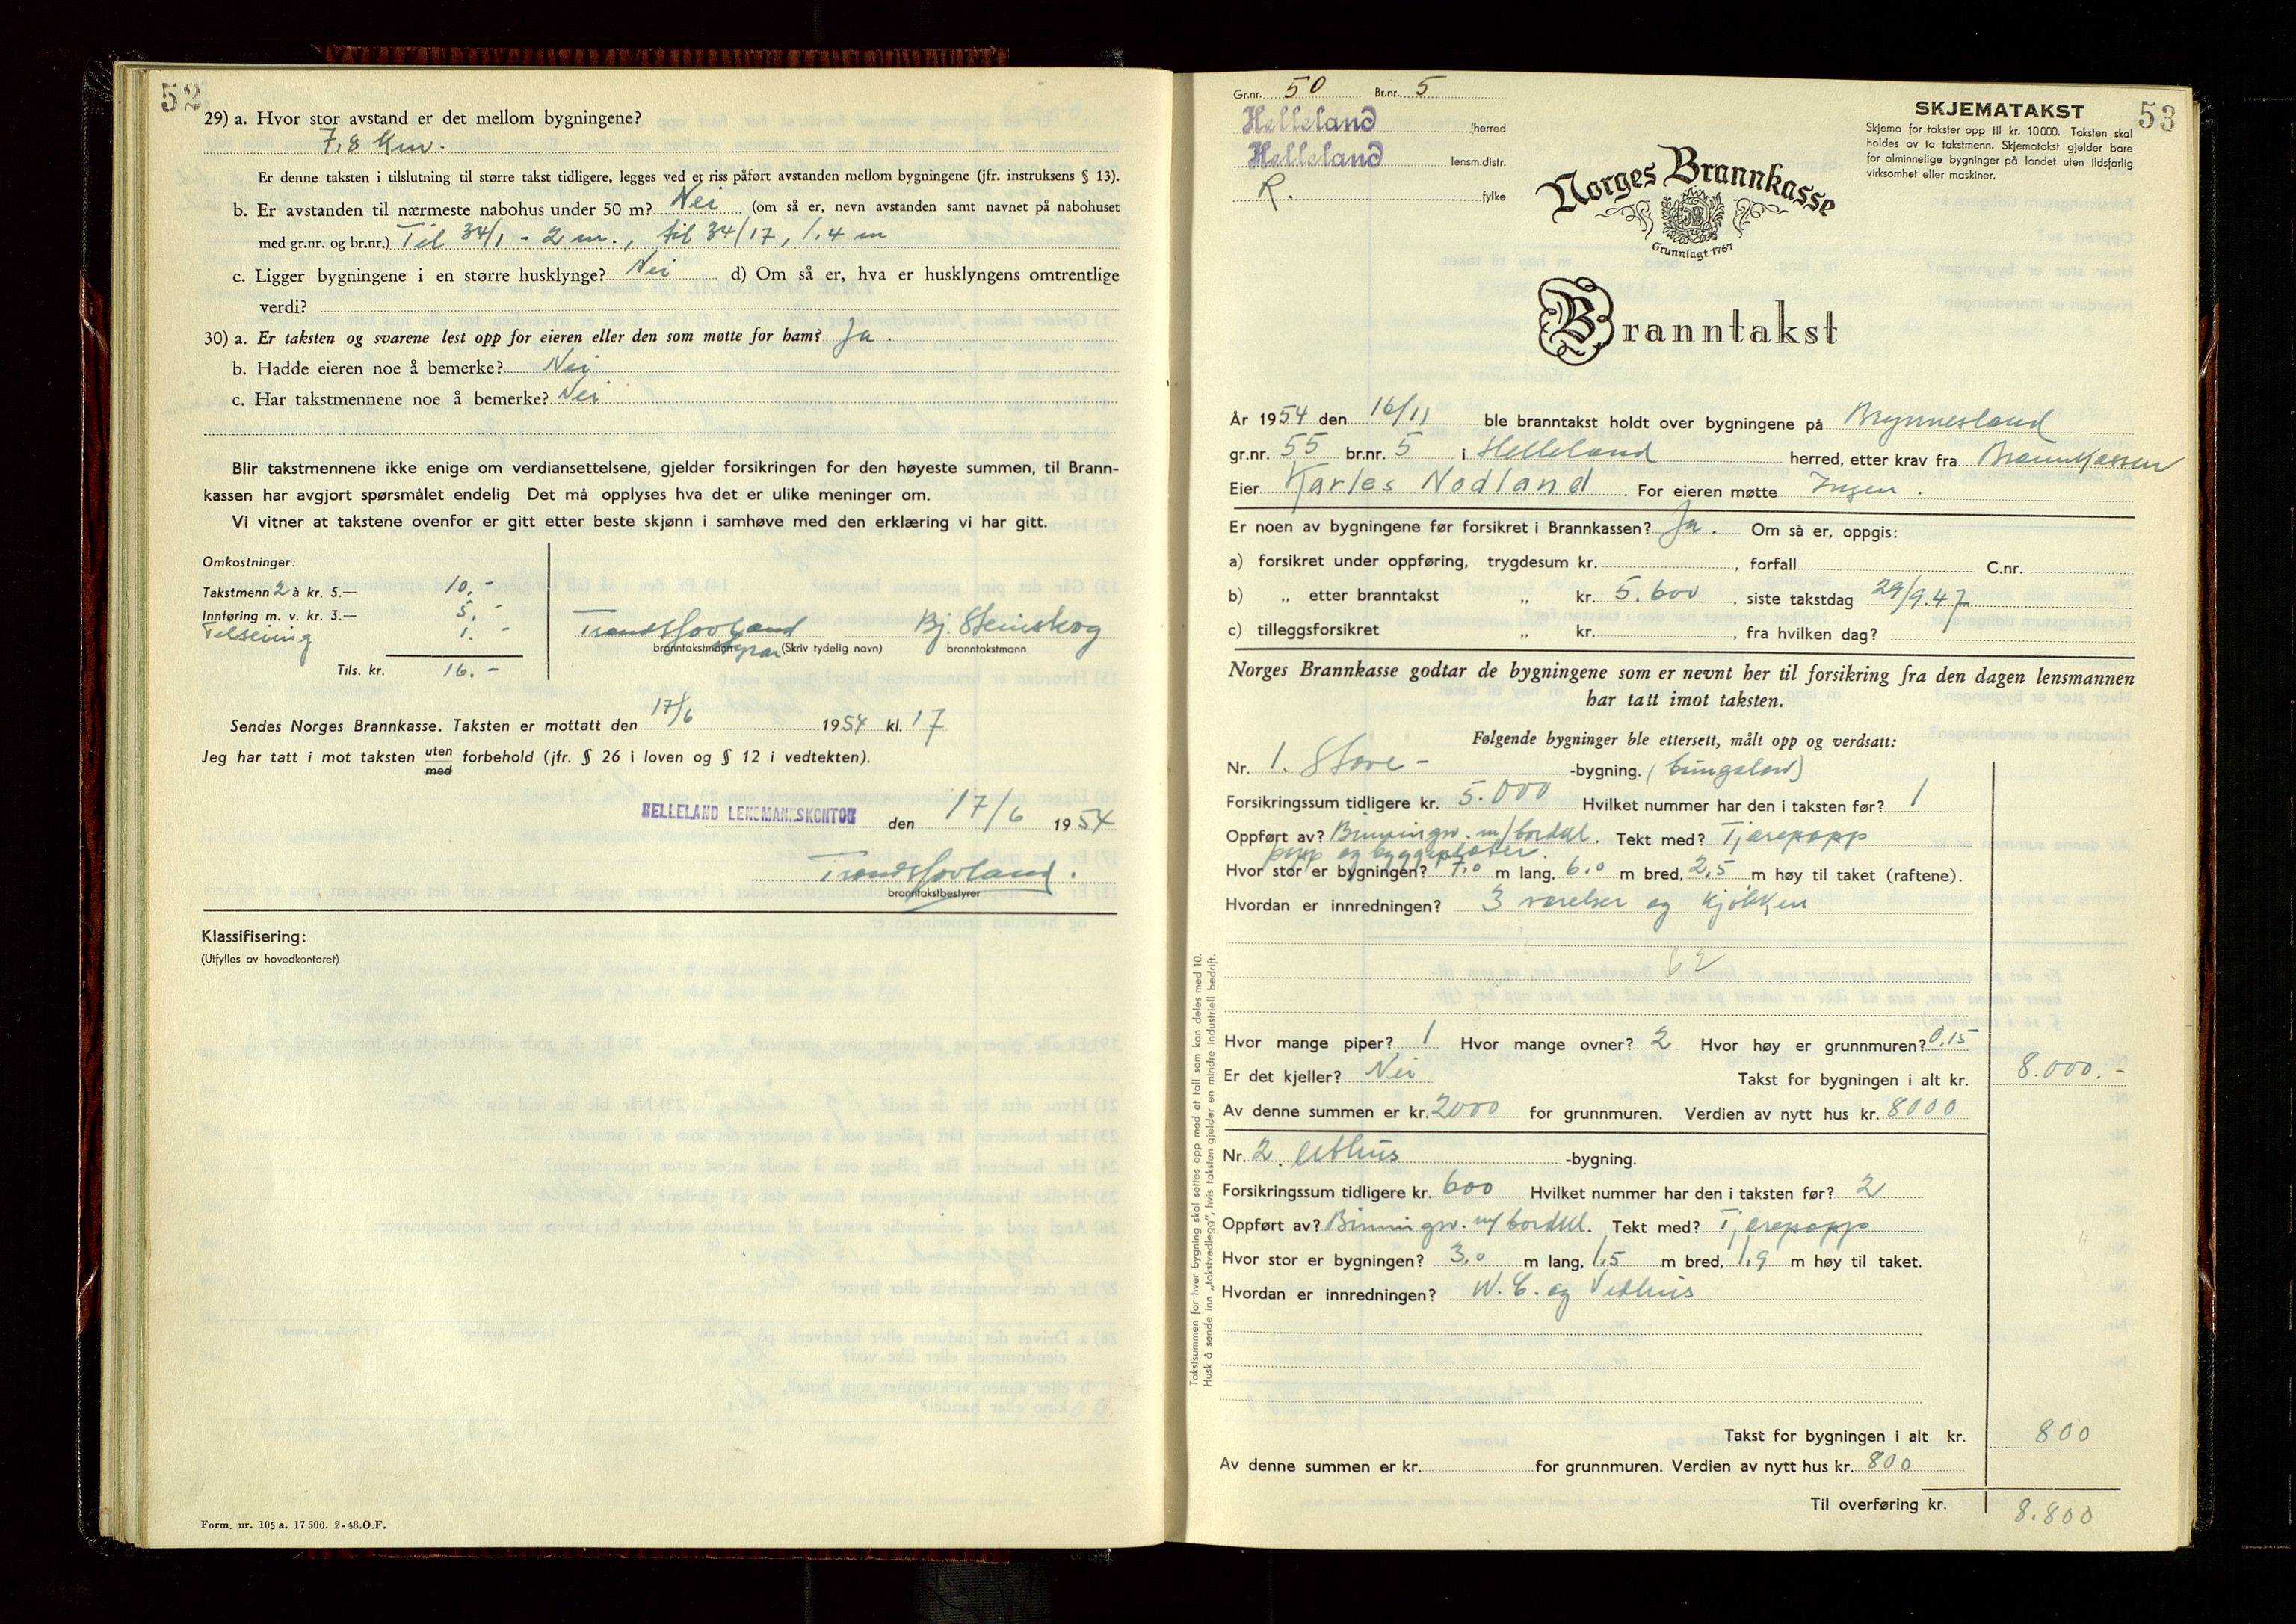 52
29) a. Hvor stor avstand er det mellom bygningene?
7,8 Km.
Er denne taksten i tilslutning til større takst tidligere, legges ved et riss påført avstanden mellom bygningene (jfr. instruksens § 13).
b. Er avstanden til nærmeste nabohus under 50 m? Nei (om så er, nevn avstanden samt navnet på nabohuset
med gr.nr. og br.nr.) Til 34/1 - 2 m., til 34/17, 1.4 m
c. Ligger bygningene i en større husklynge? Nei d) Om så er, hva er husklyngens omtrentlige
verdi?
30) a. Er taksten og svarene lest opp for eieren eller den som møtte for ham? Ja.
b. Hadde eieren noe å bemerke? Nei
c. Har takstmennene noe å bemerke? Nei
Blir takstmennene ikke enige om verdiansettelsene, gjelder forsikringen for den høyeste summen, til Brann-
kassen har avgjort spørsmålet endelig Det må opplyses hva det er ulike meninger om.
Vi vitner at takstene ovenfor er gitt etter beste skjønn i samhøve med den erklæring vi har gitt.
Omkostninger:
Takstmenn 2 à kr. 5.— 10.-
Innføring m. v. kr. 3.— 5.-
Telseiing 1.-
Tils. kr. 16.-
Trond Hovland Bj. Steinskog
branntakstmann (Skriv tydelig navn) branntakstmann
Sendes Norges Brannkasse. Taksten er mottatt den 17/6 1954 kl. 17
Jeg har tatt i mot taksten uten med forbehold (jfr. § 26 i loven og § 12 i vedtekten).
HELLELAND LENSMANNSKONTOR den 17/6 1954
Trond Hovland.
branntakstbestyrer
Klassifisering:
(Utfylles av hovedkontoret)
Form. nr. 105 a. 17 500. 2-48. O.F.
53
Gr.nr. 50 Br.nr. 5
Helleland herred
Helleland lensm.distr.
R. fylke
SKJEMATAKST
Skjema for takster opp til kr. 10000. Taksten skal
holdes av to takstmenn. Skjematakst gjelder bare
for alminnelige bygninger på landet uten ildsfarlig
virksomhet eller maskiner.
Norges Brannkasse
Grunnlagt 1767
Branntakst
År 1954 den 16/11 ble branntakst holdt over bygningene på Brynnesland
gr.nr. 55 br.nr. 5 i Helleland herred, etter krav fra Brannkassen
Eier Karles Nodland. For eieren møtte Ingen.
Er noen av bygningene før forsikret i Brannkassen? Ja. Om så er, oppgis:
a) forsikret under oppføring, trygdesum kr. , forfall C.nr.
b) „ etter branntakst „ kr. 5.600, siste takstdag 29/9.47
c) tilleggsforsikret „ kr. , fra hvilken dag?
Norges Brannkasse godtar de bygningene som er nevnt her til forsikring fra den dagen lensmannen
har tatt imot taksten.
Følgende bygninger ble ettersett, målt opp og verdsatt:
Nr. 1. Stove- -bygning. (bungalow)
Forsikringssum tidligere kr. 5.000 Hvilket nummer har den i taksten før? 1
Oppført av? Binningsv. m/bordkl. Tekt med? Tjærepapp
papp og byggeplater.
Hvor stor er bygningen? 7,0 m lang, 6,0 m bred, 2,5 m høy til taket (raftene).
Hvordan er innredningen? 3 værelser og kjøkken
62
Hvor mange piper? 1 Hvor mange ovner? 2 Hvor høy er grunnmuren? 0,15
Er det kjeller? Nei Takst for bygningen i alt kr. 8.000.-
Av denne summen er kr. 2000 for grunnmuren. Verdien av nytt hus kr. 8000
Nr. 2. Uthus -bygning.
Forsikringssum tidligere kr. 600 Hvilket nummer har den i taksten før? 2
Oppført av? Binningsv. m/bordkl. Tekt med? Tjærepapp
Hvor stor er bygningen? 3,0 m lang, 1,5 m bred, 1,9 m høy til taket.
Hvordan er innredningen? W.C. og Vedhus
Takst for bygningen i alt kr. 800
Av denne summen er kr. for grunnmuren. Verdien av nytt hus kr. 800
Til overføring kr. 8.800
Takstsummen for hver bygning skal settes opp med et tall som kan deles med 10.
Husk å sende inn „takstvedlegg", hvis taksten gjelder en mindre industriell bedrift.